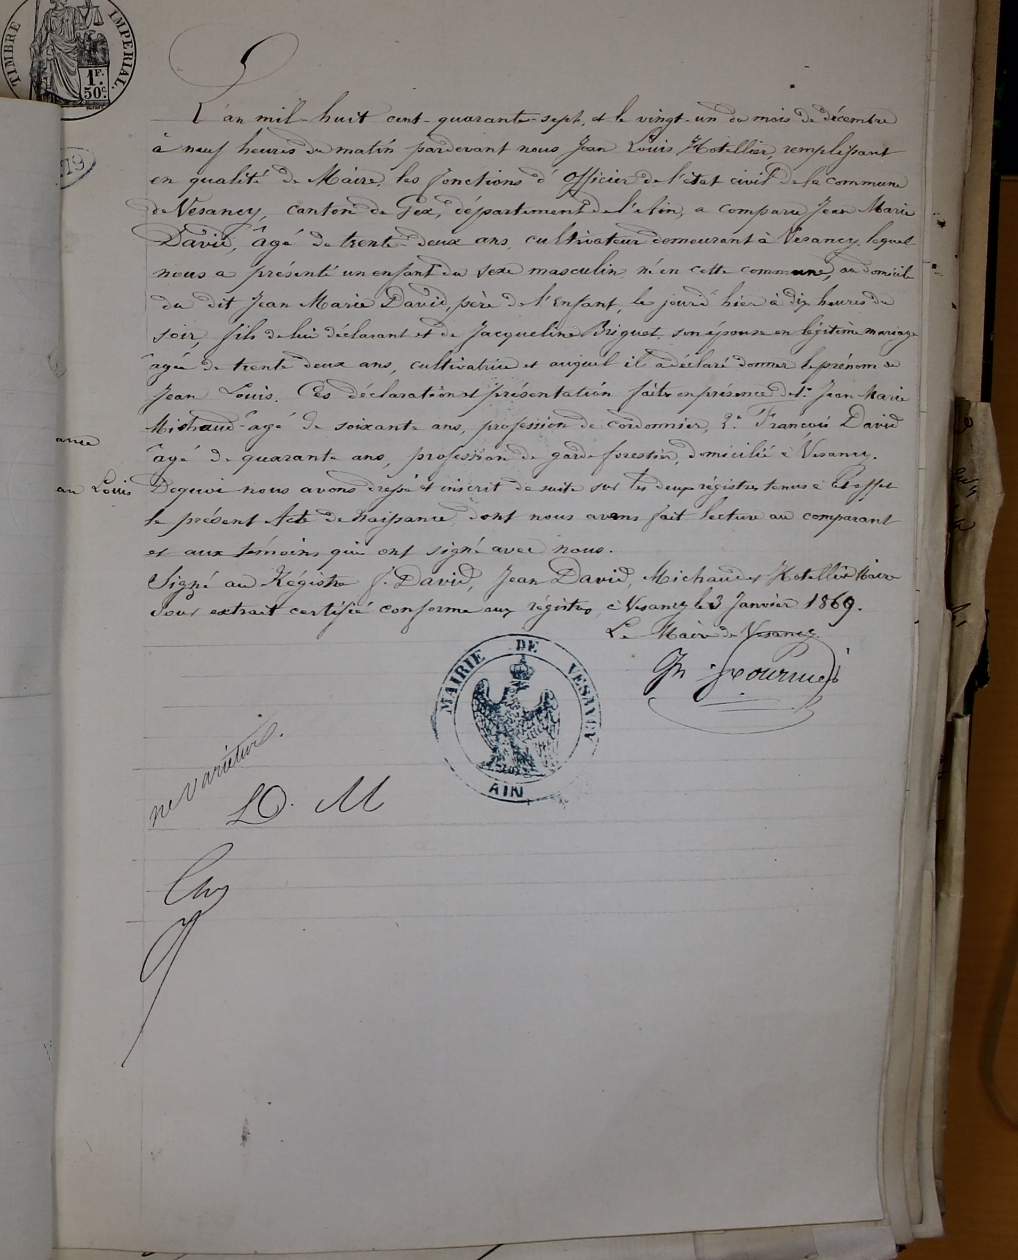 TIMBRE IMPERIAL
1F.
50c.
79
L'an mil huit cent quarante-sept, et le vingt-un du mois de décembre
à neuf heures du matin pardevant nous Jean Louis Hotellier, remplissant
en qualité de Maire, les fonctions d'Officier de l'état civil de la commune
de Vesancy, canton de Gex, département de l'Ain, a comparu Jean Marie
David, âgé de trente-deux ans, cultivateur demeurant à Vesancy, lequel
nous a présenté un enfant du sexe masculin né en cette commune, au domicile
du dit Jean Marie David, père de l'Enfant, le jourd'hier à dix heures du
soir, fils de lui déclarant et de Jacqueline Briguet son épouse en légitime mariage
âgée de trente deux ans, cultivatrice et auquel il a déclaré donner le prénom de
Jean Louis. Ces déclaration et présentation faites en présence de 1° Jean Marie
Michaud âgé de soixante ans, profession de cordonnier, 2° François David
âgé de quarante ans, profession de garde forestier, domicilié à Vesancy.
ance
au Louis
De quoi nous avons dressé et inscrit de suite sur les deux régistres tenus à cet effet
le présent Acte de Naissance dont nous avons fait lecture au comparant
et aux témoins qui ont signé avec nous.
Signé au Régistre J. David, Jean David, Michaud et Hotellier Maire
Pour extrait certifié conforme aux régistres, à Vesancy le 3 Janvier 1869.
Le Maire de Vesancy
Fournier
MAIRIE DE VESANCY
AIN
ne varietur.
LD. M